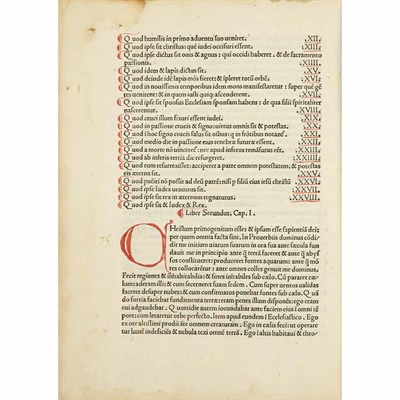 Quod humilis in primo aduentu suo ueniret. .XII.
Quod ipse sit christus: quē iudei occisuri essent. .XIII.
Quod ipse sit ouis & agnus: qui occidi haberet. & de sacramento
passionis. .XIIII.
Quod idem & lapis dictus sit. .XV.
Quod deinde idē lapis mōs fieret: & ipleret totū orbē. .XVI.
Quod in nouissimis temporibus idem mons manifestaretur: super quē gē
tes uenirent: & in quem iusti quiq; ascenderent. .XVII.
Quod ipse sit sponsus Ecclesiam sponsam habens: de qua filii spiritaliter
nascerentur. .XVIII.
Quod cruci illum fixuri essent iudei. .XIX.
Quod in passione crucis & signo uirtus omnis sit & potestas. .XX.
Quod i hoc signo crucis salus sit oibus: q in frōtibus notant. .XXI.
Quod medio die in passione eius tenebræ futuræ essent. .XXII.
Quod a morte nō uinceret: nec apud inferos remāsurus eēt. .XXIII.
Quod ab inferis tertia die resurgeret. .XXIIII.
Quod cum resurrexisset: acciperet a patre omnem potestatem: & potestas
eius æterna sit. .XXV.
Quod pueniri nō possit ad deū patrē: nisi p filiū eius iesū christū .XXVI.
Quod ipse iudex uenturus sit. .XXVII.
Quod ipse sit & Iudex & Rex. .XXVIII.
Liber Secundus. Cap. I.
CHristum primogenitum esse: & ipsum esse sapientiā dei:
per quem omnia facta sunt. In Prouerbiis dominus cōdi
dit me initium uiarum suarum in opera sua ante sæcula fun
dauit me in principio ante q̄ terrā faceret & ante q̄ abys
sos constitueret: produceret fontes aquarum: ante q̄ mō
tes collocarētur: ante omnes colles genuit me dominus.
Fecit regiones & inhabitabilia: & fines inhabitabiles sub cælo. Cū pararet cæ
lum: aderam illi: & cum secerneret suam sedem. Cum super uentos ualidas
faceret desuper nubes: & cum confirmatos ponebat fontes sub cælo. Quan
do fortia faciebat fundamenta terræ: eram penes illum disponēs: ego eram
cui adgaudebat. Quottidie autem iocundabar ante faciem eius in omni tē
pore: cum lætaretur orbe perfecto. Item apud eundem in Ecclesiastico. Ego
ex ore altissimi prodii āte omnem creaturam. Ego in cælis feci: ut oriretur
lumen indeficiens & nebula texi omnē terrā. Ego ī altis habitaui & thro-